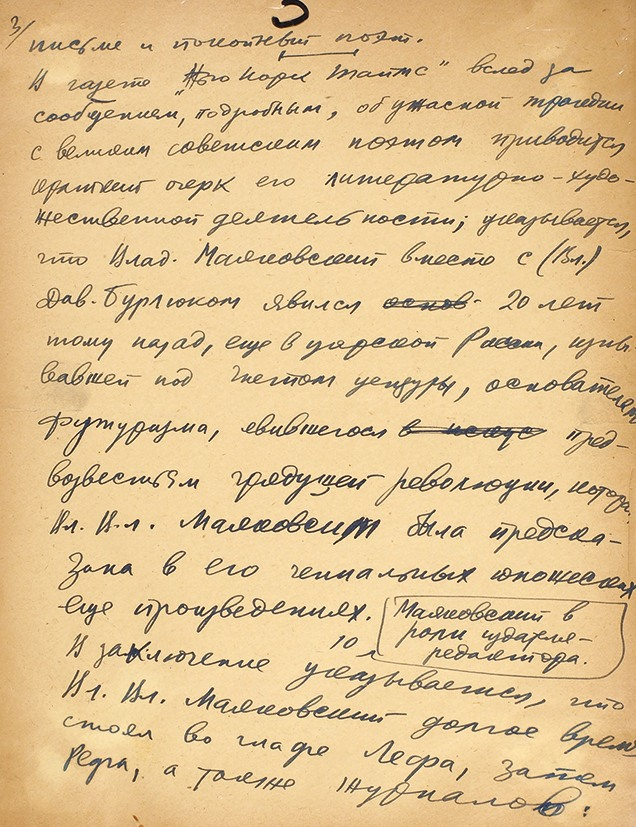 3/
письме и покойный поэт.
В газете „Нью Йорк Таймс" вслед за
сообщением, подробным, об ужасной трагедии
с великим советским поэтом приводится
краткий очерк его литературно-худо-
жественной деятельности; указывается,
что Влад. Маяковский вместе с (Вл.)
Дав. Бурлюком явился основ- 20 лет
тому назад, еще в царской России, изны-
вавшей под гнетом цензуры, основателем
футуризма, явившегося в искус пред-
возвестьем грядущей революции, котора
Вл. Вл. Маяковским была предска-
зана в его гениальных юношеских
еще произведениях.
Маяковский в
роли издателя-
редактора.
В заключение 10 указывается, что
Вл. Вл. Маяковский долгое время
стоял во главе Лефа, затем
Рефа, а также журналов: